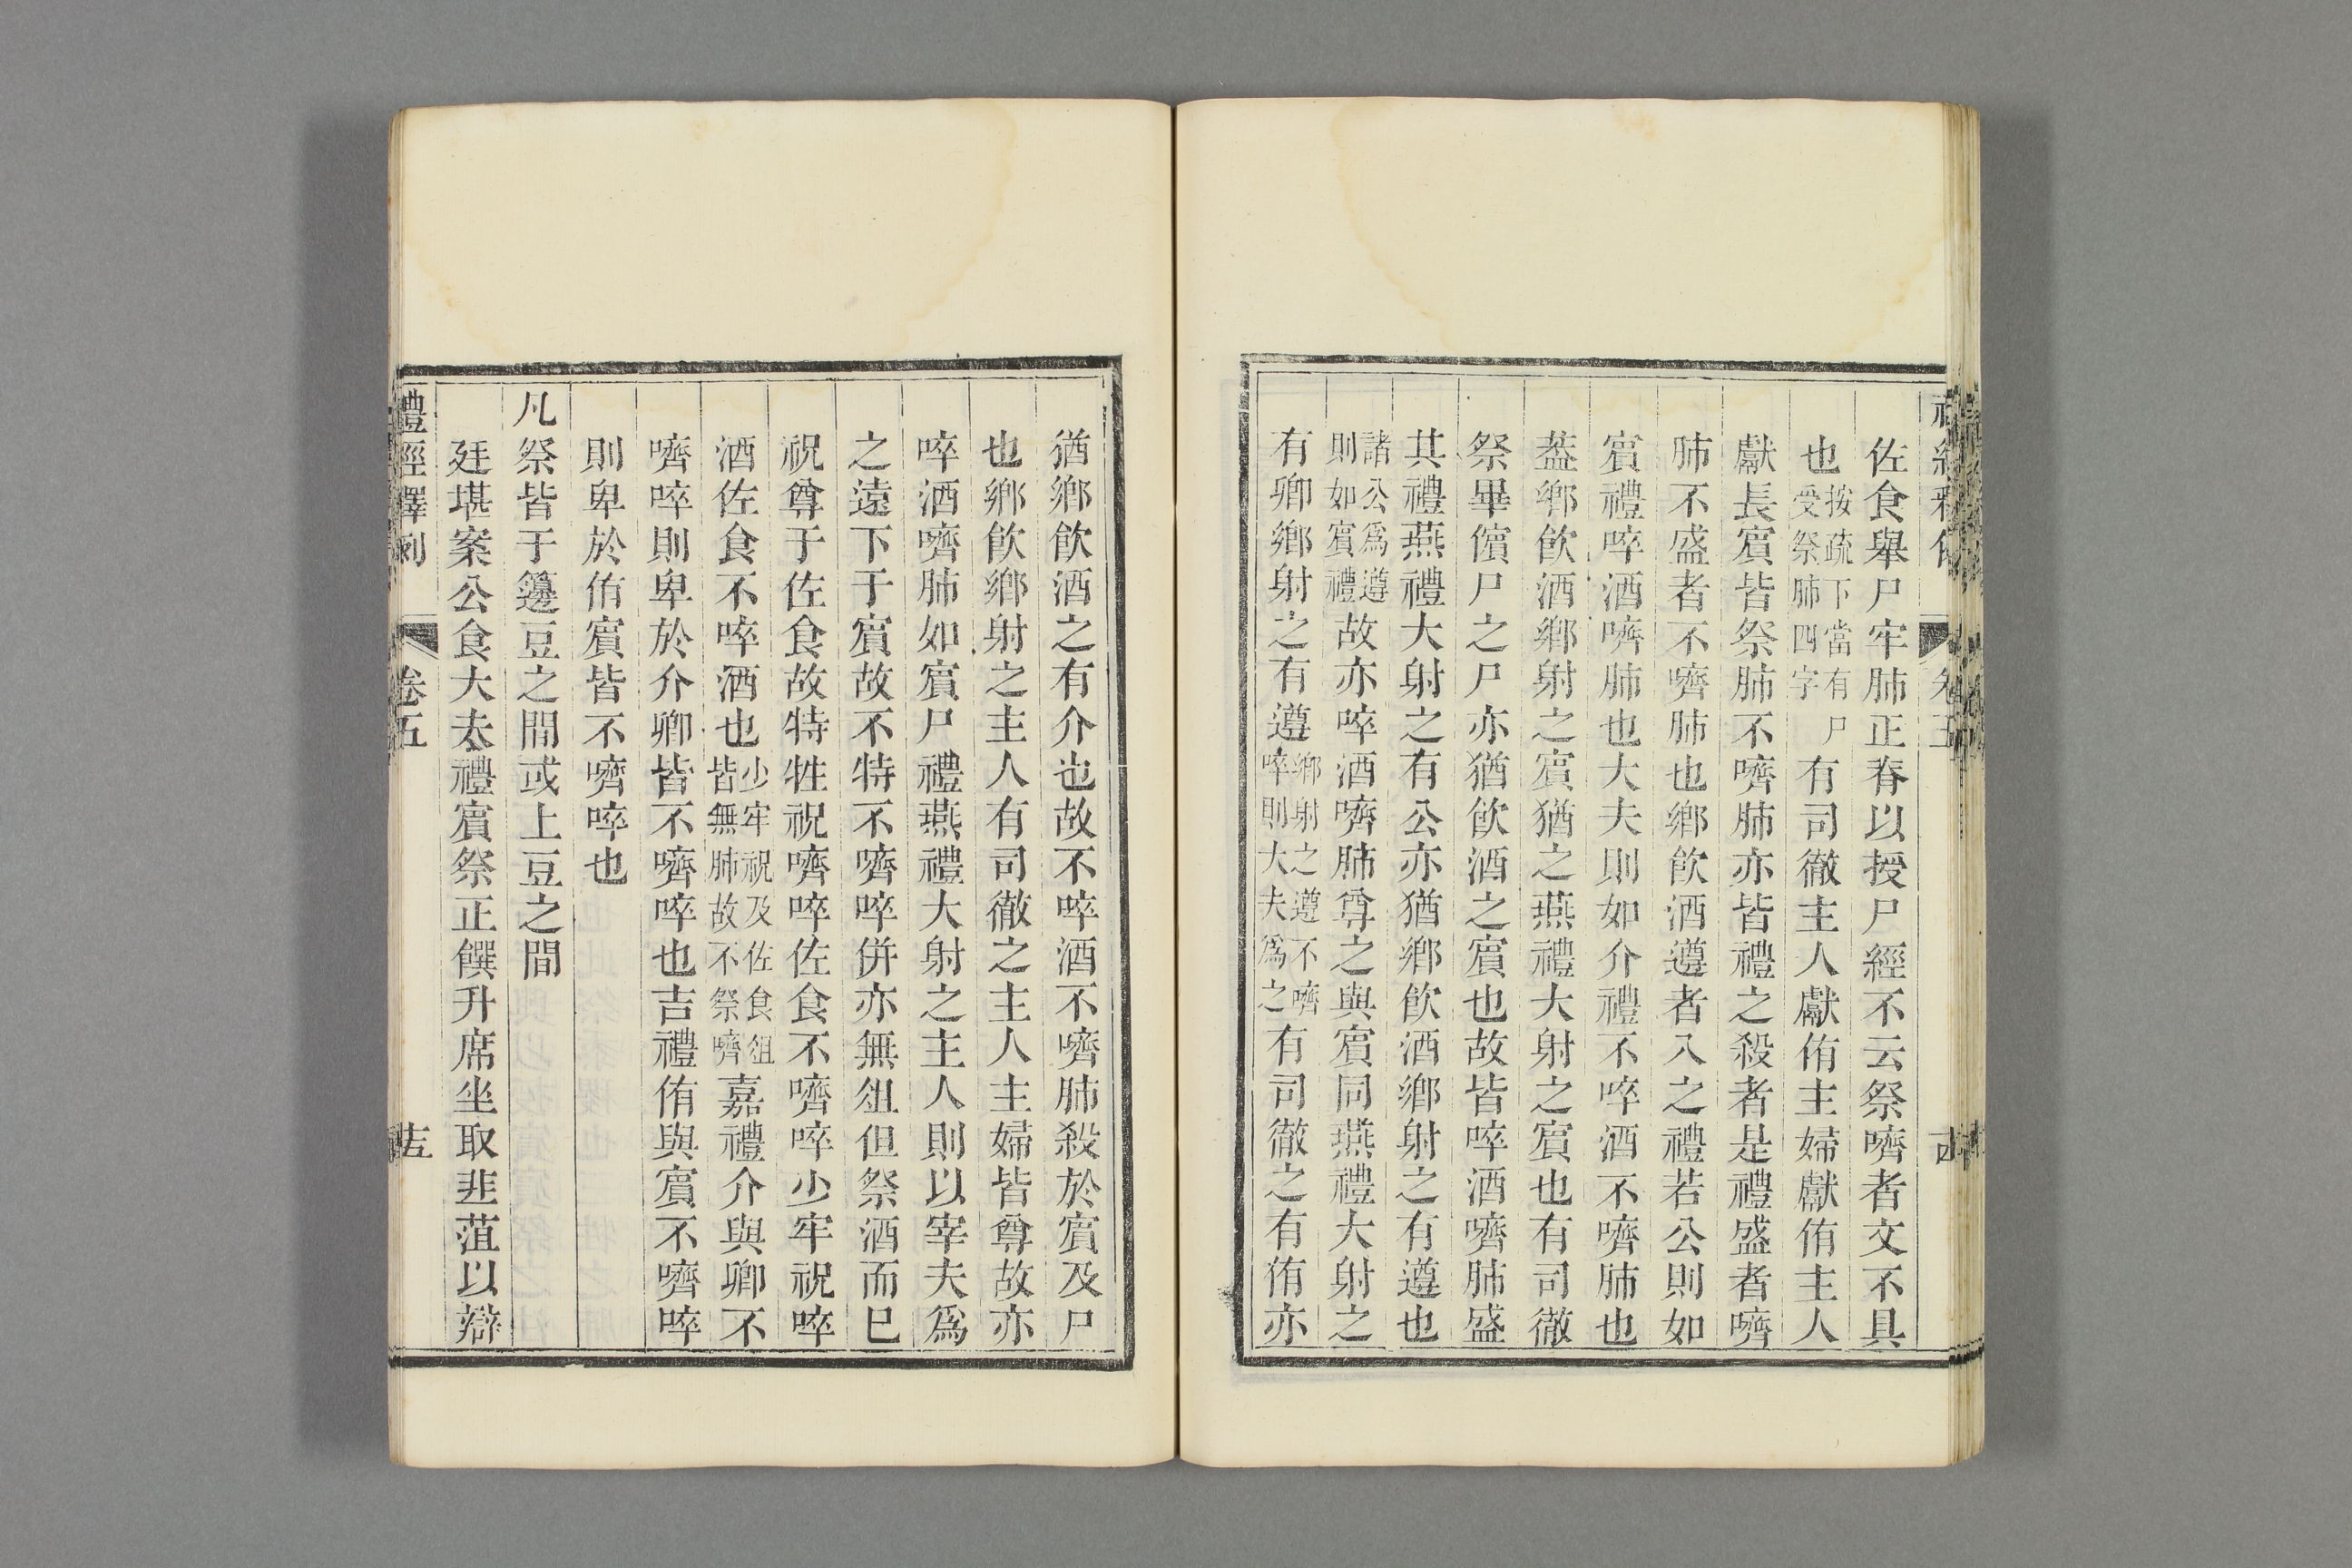 佐食舉尸牢肺正脊以授尸經不云祭嚌者文不具
也按疏下當有尸受祭肺四字有司徹主人獻侑主婦獻侑主人
獻長賓皆祭肺不嚌肺亦皆禮之殺者是禮盛者嚌
肺不盛者不嚌肺也鄉飲酒遵者入之禮若公則如
賓禮啐酒嚌肺也大夫則如介禮不啐酒不嚌肺也
葢鄉飲酒鄉射之賓猶之燕禮大射之賓也有司徹
祭畢儐尸之尸亦猶飲酒之賓也故皆啐酒嚌肺盛
其禮燕禮大射之有公亦猶鄉飲酒鄉射之有遵也
諸公爲遵則如賓禮故亦啐酒嚌肺尊之與賓同燕禮大射之
有卿鄉射之有遵鄉射之遵不嚌啐則大夫爲之有司徹之有侑亦
猶鄉飲酒之有介也故不啐酒不嚌肺殺於賓及尸
也鄉飲鄉射之主人有司徹之主人主婦皆尊故亦
啐酒嚌肺如賓尸禮燕禮大射之主人則以宰夫爲
之遠下于賓故不特不嚌啐併亦無俎但祭酒而已
祝尊于佐食故特牲祝嚌啐佐食不嚌啐少牢祝啐
酒佐食不啐酒也少牢祝及佐食俎皆無肺故不祭嚌嘉禮介與卿不
嚌啐則卑於介卿皆不嚌啐也吉禮侑與賓不嚌啐
則卑於侑賓皆不嚌啐也
凡祭皆于籩豆之間或上豆之間
廷堪案公食大夫禮賓祭正饌升席坐取韭菹以辯
禮經釋例 卷五 十五